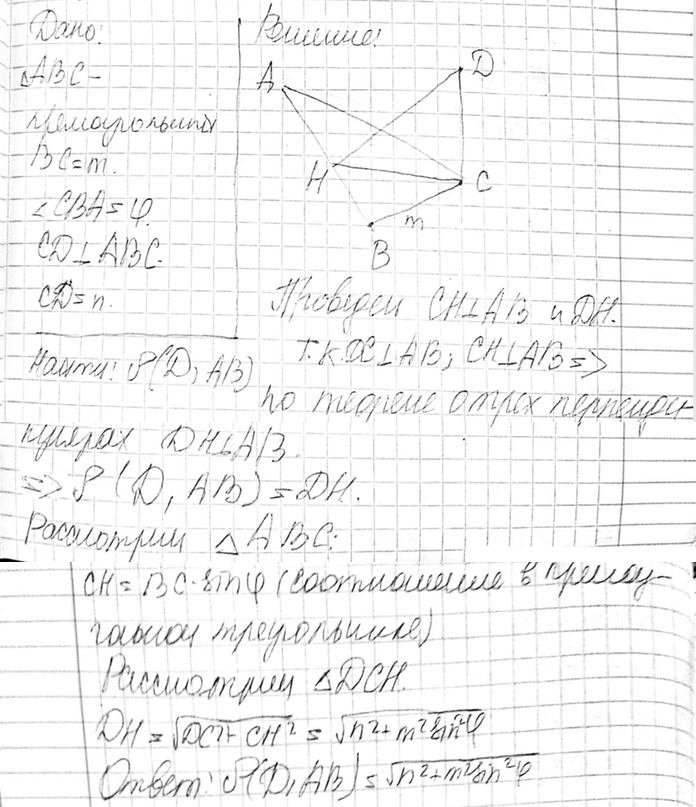 Дано:
△ABC –
прямоугольный
BC=m.
∠CBA=φ.
CD⊥ABC.
CD=n.
Найти: ρ(D, AB)
Решение:
A
D
H
C
m
B
Проведем CH⊥AB и DH.
т.к. DC⊥AB, CH⊥AB =>
по теореме о трех перпенди
кулярах DH⊥AB.
=> ρ(D, AB) = DH.
Рассмотрим △ABC:
CH = BC·sinφ (соотношение в прямоу-
гольном треугольнике)
Рассмотрим △DCH.
DH = √DC²+CH² = √n²+m²sin²φ
Ответ: ρ(D, AB) = √n²+m²sin²φ